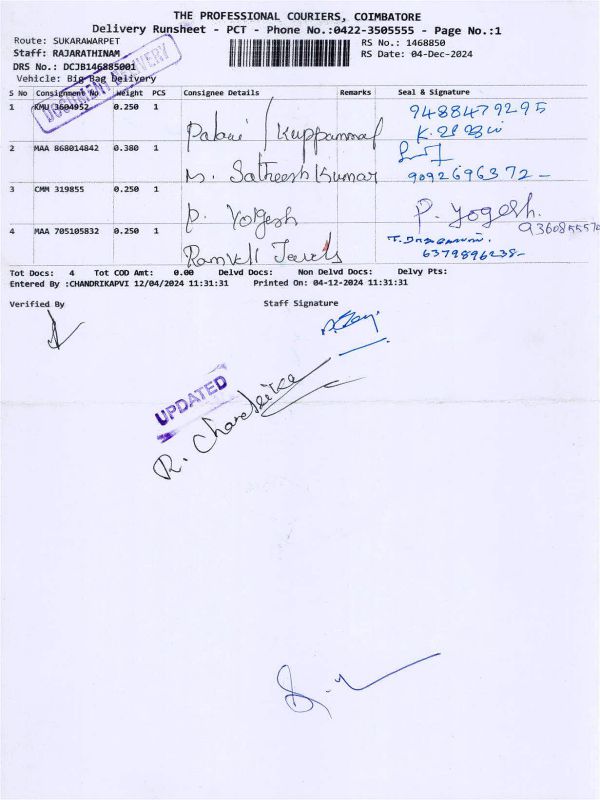 THE PROFESSIONAL COURIERS, COIMBATORE
Delivery Runsheet - PCT - Phone No.:0422-3505555 - Page No.:1
Route: SUKARAWARPET
RS No.: 1468850
Staff: RAJARATHINAM
RS Date: 04-Dec-2024
DRS No.: DCJB146885001
Vehicle: Big Bag Delivery
DOCUMENT DELIVERY
S No Consignment No Weight PCS Consignee Details Remarks Seal & Signature
1 KMU 3604952 0.250 1
Palani / Kuppammal
9488479295
2 MAA 868014842 0.380 1
M. Satheesh Kumar
9092696372 -
3 CMM 319855 0.250 1
P. Yogesh
P. Yogesh.
4 MAA 705105832 0.250 1
6379896238-
Tot Docs: 4 Tot COD Amt: 0.00 Delvd Docs: Non Delvd Docs: Delvy Pts:
Entered By :CHANDRIKAPVI 12/04/2024 11:31:31 Printed On: 04-12-2024 11:31:31
Verified By Staff Signature
UPDATED
R. Chandrika